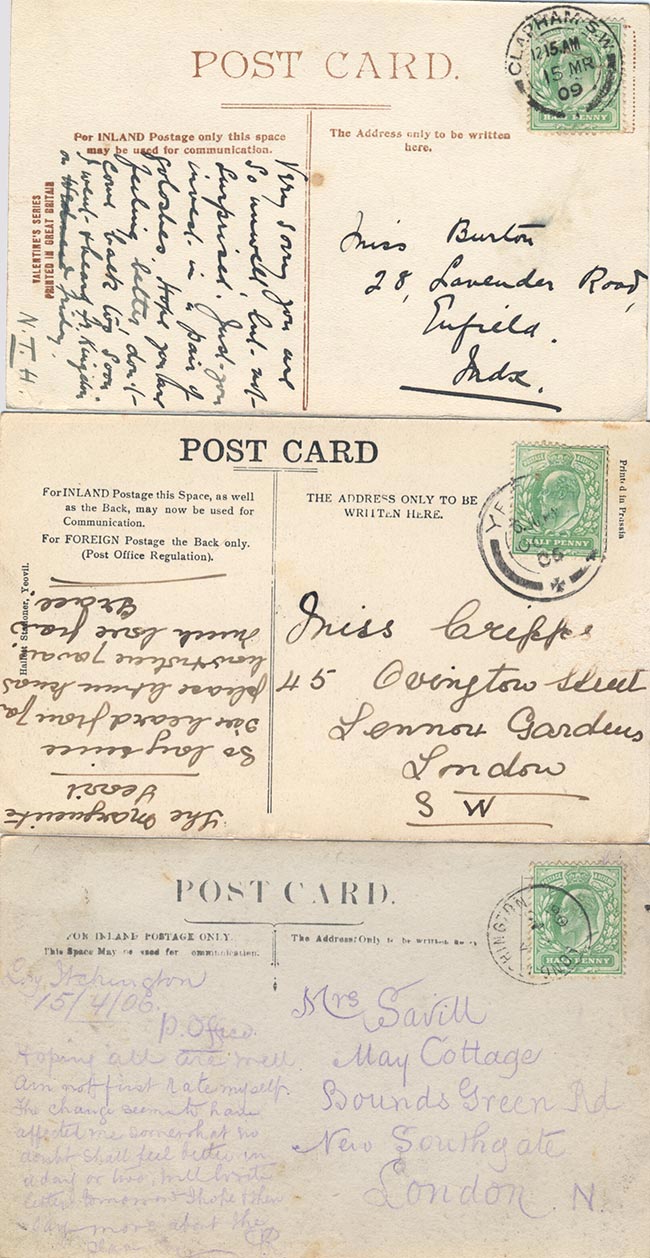 POST CARD.
CLAPHAM. S.W
12 15. AM
15 MR
09
HALF PENNY
For INLAND Postage only this space
may be used for communication.
The Address only to be written
here.
VALENTINE'S SERIES
PRINTED IN GREAT BRITAIN
Very sorry you are
so unwell, but not
surprised. Just you
invest in a pair of
goloshes. Hope you are
feeling better, don't
come back too soon.
I went & heard
on Friday.
N.T.H.
Miss Burton
28, Lavender Road,
Enfield.
Mdx.
POST CARD
For INLAND Postage this Space, as well
as the Back, may now be used for
Communication.
For FOREIGN Postage the Back only.
(Post Office Regulation).
THE ADDRESS ONLY TO BE
WRITTEN HERE.
Printed in Prussia
POSTAGE REVENUE
HALF PENNY
06
Stationer, Yeovil.
The Marguerite
Yeovil
So long since
I've heard from you
please let me know
how
much love from
Grace
Miss Cripps
45 Ovington Street
Lennox Gardens
London
S W
POST CARD.
FOR INLAND POSTAGE ONLY.
This Space May be used for communication.
The Address Only to be written
LONG ITCHINGTON
HALF PENNY
Long Itchington
15/4/06.
P. Office.
Hoping all are well.
Am not first rate myself.
The change seems to have
affected me somewhat no
doubt shall feel better in
a day or two, will write
letter tomorrow I hope & then
say more about the
Mrs Savill
May Cottage
Bounds Green Rd
New Southgate
London. N